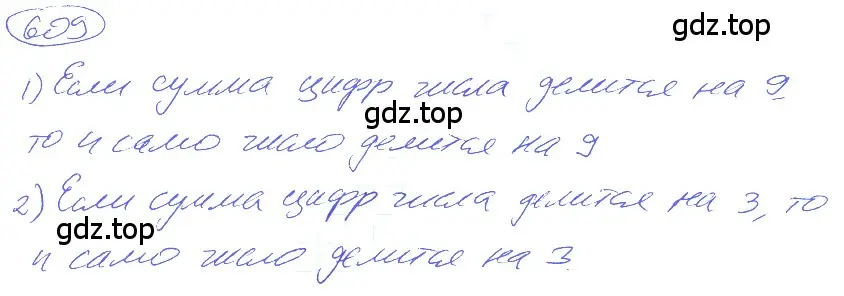 609
gdz.top
1) Если сумма цифр числа делится на 9
gdz.top
то и само число делится на 9
2) Если сумма цифр числа делится на 3, то
gdz.top
и само число делится на 3
gdz.top